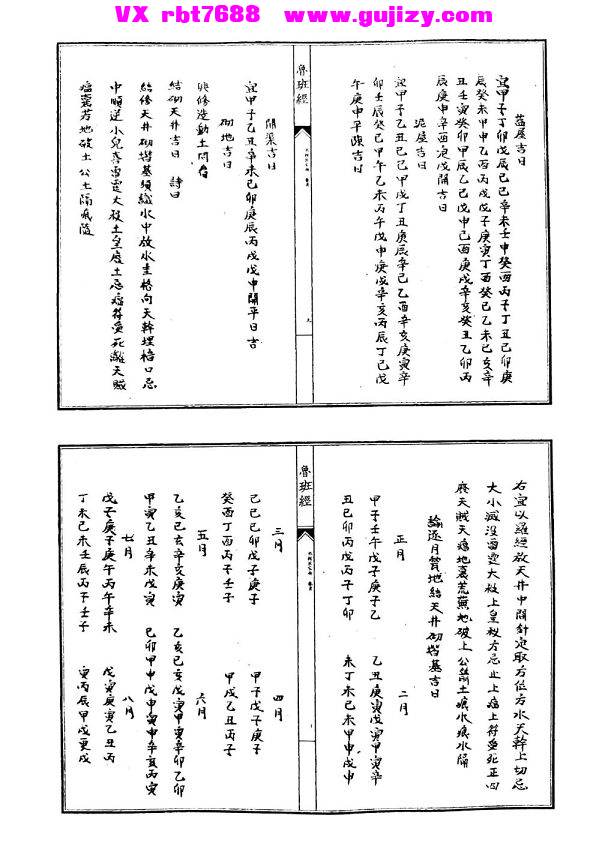 VX rbt7688 www.gujizy.com
蓋屋吉日
宜甲子丁卯戊辰己巳辛未壬申癸酉丙子丁丑己卯庚
辰癸未甲申乙酉丙戌戊子庚寅丁酉癸巳乙未己亥辛
丑壬寅癸卯甲辰乙巳戊申己酉庚戌辛亥癸丑乙卯丙
辰庚申辛酉定成開吉日
泥屋吉日
宜甲子乙丑己巳甲戌丁丑庚辰辛巳乙酉辛亥庚寅辛
卯壬辰癸巳甲午乙未丙午戊申庚戌辛亥丙辰丁巳戊
午庚申平成吉日
魯班經
開渠吉日
宜甲子乙丑辛未己卯庚辰丙戌戊申開平日吉
砌地吉日
與修造動土同看
結砌天井吉日 詩曰
結修天井砌堦基須識水中放水圭格向天幹埋棓口忌
中順逆小兒
土皇
土忌瘟符受死離天賊
瘟
地破土公土隔
右宜以羅經放天井中間針定取方位方水天幹上切忌
大小滅沒雷霆大殺土皇殺方忌止土瘟土符受死正四
廢天賊天瘟地囊荒蕪地破土公箭土痕水痕水隔
論逐月營地結天井砌堦基吉日
正月
甲子壬午戊子庚子乙
丑己卯丙戌丙子丁卯
二月
乙丑庚寅戊寅甲寅辛
未丁未己未甲申戊申
魯班經
三月
己巳己卯戊子庚子
癸酉丁酉丙子壬子
四月
甲子戊子庚子
甲戌乙丑丙子
五月
乙亥己亥辛亥庚寅
甲寅乙丑辛未戊寅
六月
乙亥己亥戊寅甲寅辛卯乙卯
己卯甲申戊申庚申辛亥丙寅
七月
戊子庚子庚午丙午辛未
丁未己未壬辰丙子壬子
八月
戊寅庚寅乙丑丙
寅丙辰甲戌庚戌